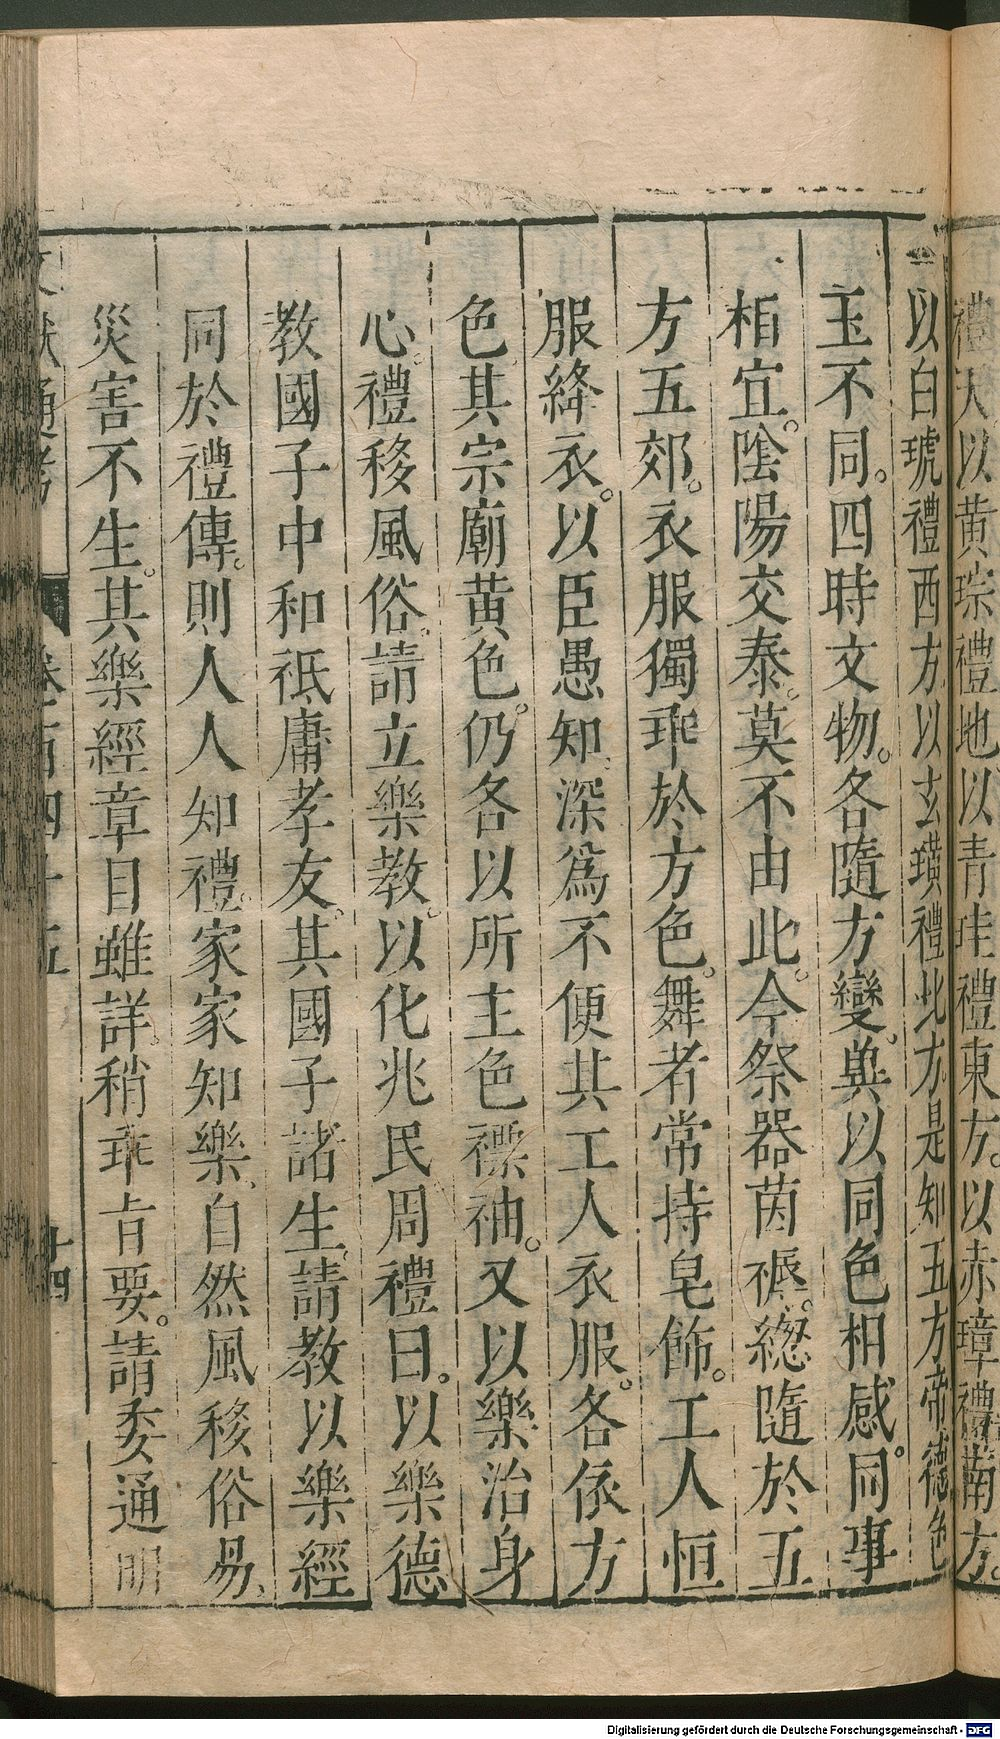 禮天。以黃琮禮地。以青圭禮東方。以赤璋禮南方。
以白琥禮西方。以玄璜禮北方。是知五方帝德色
玉不同。四時文物。各隨方變。㒷以同色相感。同事
相宜。陰陽交泰。莫不由此。今祭器茵褥。緫隨於五
方五郊。衣服獨乖於方色。舞者常持皂飾。工人恒
服絳衣。以臣愚知。深爲不便。其工人衣服。各依方
色。其宗廟黃色。仍各以所主色褾袖。又以樂治身
心。禮移風俗。請立樂教。以化兆民。周禮曰。以樂德
教國子中和祗庸孝友。其國子諸生。請教以樂經
同於禮傳。則人人知禮。家家知樂。自然風移俗易、
災害不生。其樂經章目雖詳。稍乖旨要。請委通明
文獻通考 卷百四十五 十四
Digitalisierung gefördert durch die Deutsche Forschungsgemeinschaft - DFG